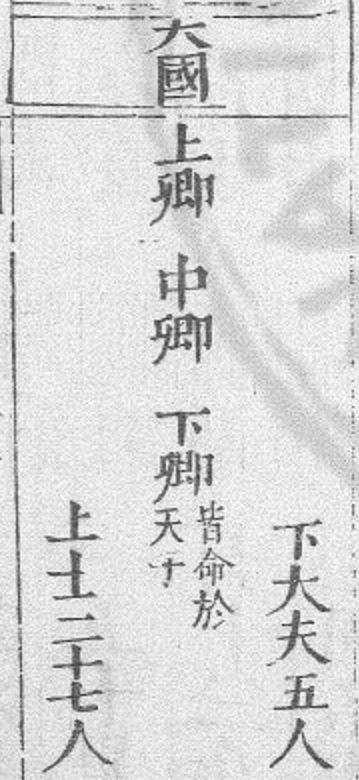 大國
上卿 中卿 下卿
皆命於
天子
下大夫五人
上士二十七人